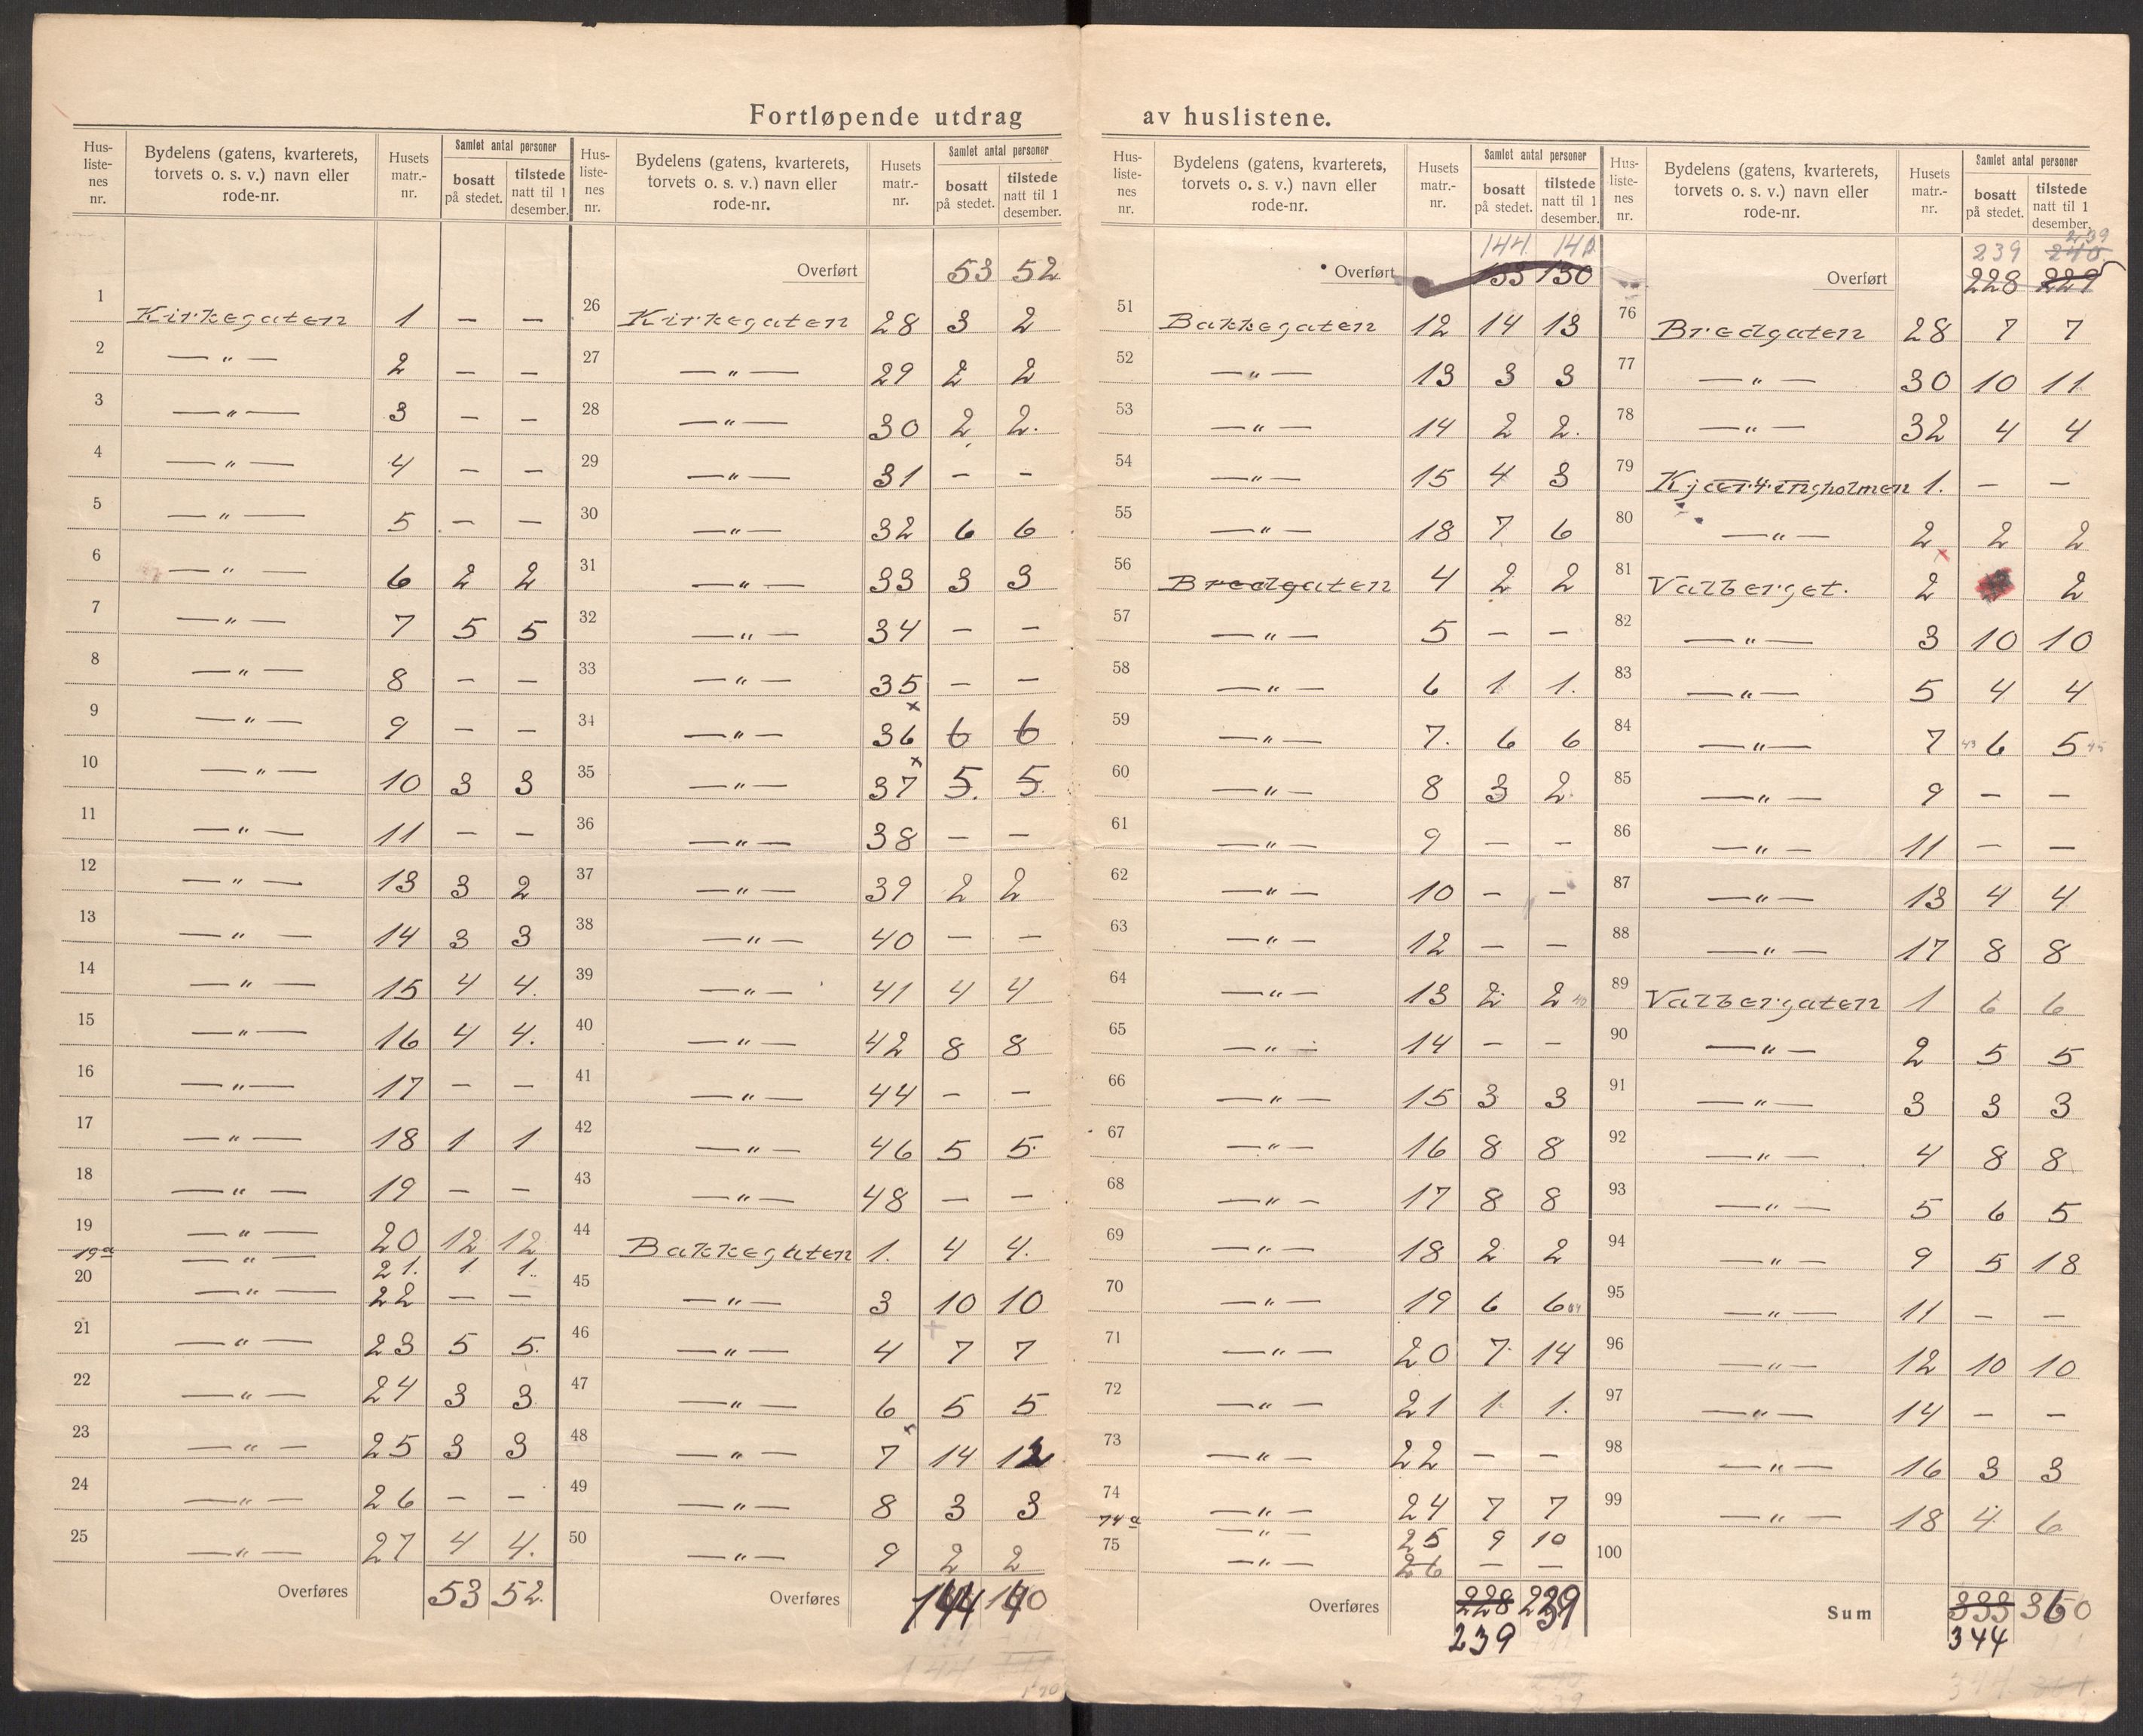 Fortløpende utdrag av huslistene.
Hus-liste-nes nr. | Bydelens (gatens, kvarterets, torvets o. s. v.) navn eller rode-nr. | Husets matr.-nr. | Samlet antal personer bosatt på stedet. | tilstede natt til 1 desember.
1 Kirkegaten 1 – –
2 —„— 2 – –
3 —„— 3 – –
4 —„— 4 – –
5 —„— 5 – –
6 —„— 6 2 2
7 —„— 7 5 5
8 —„— 8 – –
9 —„— 9 – –
10 —„— 10 3 3
11 —„— 11 – –
12 —„— 13 3 2
13 —„— 14 3 3
14 —„— 15 4 4.
15 —„— 16 4 4.
16 —„— 17 – –
17 —„— 18 1 1
18 —„— 19 – –
19 —„— 20 12 12
19a —„— 21. 1 1.
20 —„— 22 – –
21 —„— 23 5 5.
22 —„— 24 3 3
23 —„— 25 3 3
24 —„— 26 – –
25 —„— 27 4 4.
Overføres 53 52.
Hus-liste-nes nr. | Bydelens (gatens, kvarterets, torvets o. s. v.) navn eller rode-nr. | Husets matr.-nr. | Samlet antal personer bosatt på stedet. | tilstede natt til 1 desember.
Overført 53 52
26 Kirkegaten 28 3 2
27 —„— 29 2 2
28 —„— 30 2 2.
29 —„— 31 – –
30 —„— 32 6 6
31 —„— 33 3 3
32 —„— 34 – –
33 —„— 35 – –
34 —„— 36 6 6
35 —„— 37 5. 5.
36 —„— 38 – –
37 —„— 39 2 2
38 —„— 40 – –
39 —„— 41 4 4
40 —„— 42 8 8
41 —„— 44 – –
42 —„— 46 5 5.
43 —„— 48 – –
44 Bakkegaten 1. 4 4.
45 —„— 3 10 10
46 —„— 4 7 7
47 —„— 6 5 5
48 —„— 7 14 12
49 —„— 8 3 3
50 —„— 9 2 2
Overføres 144 140
144
Hus-liste-nes nr. | Bydelens (gatens, kvarterets, torvets o. s. v.) navn eller rode-nr. | Husets matr.-nr. | Samlet antal personer bosatt på stedet. | tilstede natt til 1 desember.
144 140
Overført 133 130
51 Bakkegaten 12 14 13
52 —„— 13 3 3
53 —„— 14 2 2.
54 —„— 15 4 3
55 —„— 18 7 6
56 Bredgaten 4 2 2
57 —„— 5 – –
58 —„— 6 1 1.
59 —„— 7. 6 6
60 —„— 8 3 2
61 —„— 9 – –
62 —„— 10 – –
63 —„— 12 – –
64 —„— 13 2 2
65 —„— 14 – –
66 —„— 15 3 3
67 —„— 16 8 8
68 —„— 17 8 8
69 —„— 18 2 2
70 —„— 19 6 6
71 —„— 20 7 14
72 —„— 21 1 1.
73 —„— 22 – –
74 —„— 24 7 7
74a —„— 25 9 10
75 —„— 26 – –
Overføres 228 239
239
Hus-liste-nes nr. | Bydelens (gatens, kvarterets, torvets o. s. v.) navn eller rode-nr. | Husets matr.-nr. | Samlet antal personer bosatt på stedet. | tilstede natt til 1 desember.
239
239 240
Overført 228 229
76 Bredgaten 28 7 7
77 —„— 30 10 11
78 —„— 32 4 4
79 Kjærringholmen 1. – –
80 —„— 2 2 2
81 Valberget. 2 2
82 —„— 3 10 10
83 —„— 5 4 4
84 —„— 7 43 6 5 45
85 —„— 9 – –
86 —„— 11 – –
87 —„— 13 4 4
88 —„— 17 8 8
89 Valbergaten 1 6 6
90 —„— 2 5 5
91 —„— 3 3 3
92 —„— 4 8 8
93 —„— 5 6 5
94 —„— 9 5 18
95 —„— 11 – –
96 —„— 12 10 10
97 —„— 14 – –
98 —„— 16 3 3
99 —„— 18 4 6
100
Sum 333 360
344
344 361